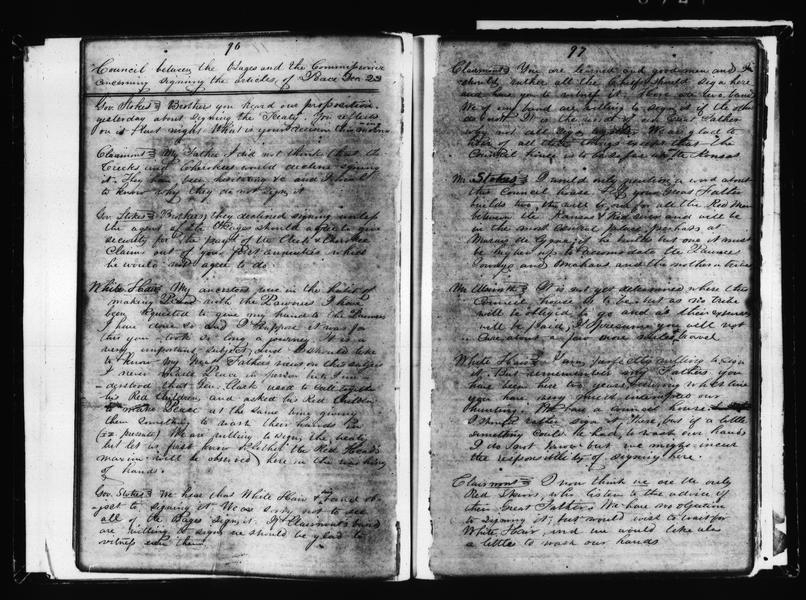 96
Council between the Osages and the Commissioners
concerning signing the articles of Peace Dec 23
Gov. Stokes Brothers you heard our proposition
yesterday about signing the Treaty. You reflected
on it last night What is your decision this morning
Clairmont My Father I did not think that the
Creeks and Cherokees would decline signing
it. They have been hesitating &c and I want
to know why they do not sign it
Gov. Stokes Brothers they declined signing unless
the agent of the Osages should agree to give
security for the paymt of the Creek & Cherokee
Claims out of your first annuities which
he would not agree to do.
White Hair My ancestors were in the habit of
making Peace with the Pawnees I have
been requested to give my hand to the Pawnees
I have done so and I suppose it was for
this you took so long a journey. It is a
very important subject, and I should like
to know my Great Fathers news on this subject
I never made Peace in person but I un-
derstood that Gen. Clark used to call together
his Red Children, and asked his Red Children
to make Peace at the same time giving
them something to wash their hands in
(viz presents) We are willing to sign the treaty
but let us first know whether the Red Heads
maxim will be observed here in the washing
of hands.
Gov. Stokes We hear that White Hair & Band ob-
-ject to signing it We are sorry not to see
all of the Osages sign it. If Clairmont's band
are willing to sign we should be glad to
witness each them
97
Clairmont You are learned and good men and I
should rather all the chiefs should sign here
and let you witness it. There are two bands
We of my band are willing to sign it if the others
do not. It is the wish of our Great Father
why not all sign together We are glad to
hear of all these things except that the
Council house is to be so far as the Kansas
Mr Stokes I would only mention a word about
this Council house. If your Great Father
builds two, this will be one for all the Red Men
between the Kansas & Red river and will be
in the most central place, perhaps at
Marais de Cygne, if he builds but one it must
be higher up to accomodate the Pawnees
and Omahas and the northern tribes
It is not yet determined where the
Council house is to be but as no tribe
will be obliged to go and as their expenses
will be paid, I presume you will not
care about a few more miles travel
White Hair I am perfectly willing to sign
it. But remember my Fathers you
have been here two years, during which time
you have very much injured our
hunting. We have a council house
I should rather sign it there, but if a little
something could be had to wash our hands
I do not know but we might incur
the responsibility of signing here.
Clairmont I now think we are the only
Red Skins, who listen to the advice of
their Great Father. We have no objection
to signing it, but would wish to wait for
White Hair, and we would like also
a little to wash our hands